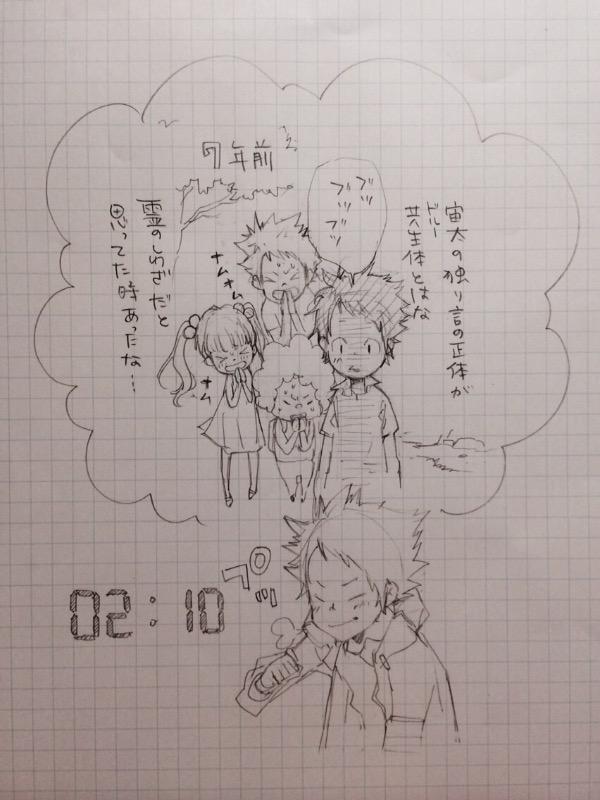 宙太の独り言の正体が
ドルー
共生体とはな
ブツ
ブツブツ
7年前
ナムナム
ナム
霊のしわざだと
思ってた時あったな…
ペッ
02:10